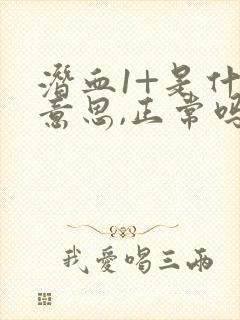 潜血1+是什
意思,正常吗
我愛唱三兩